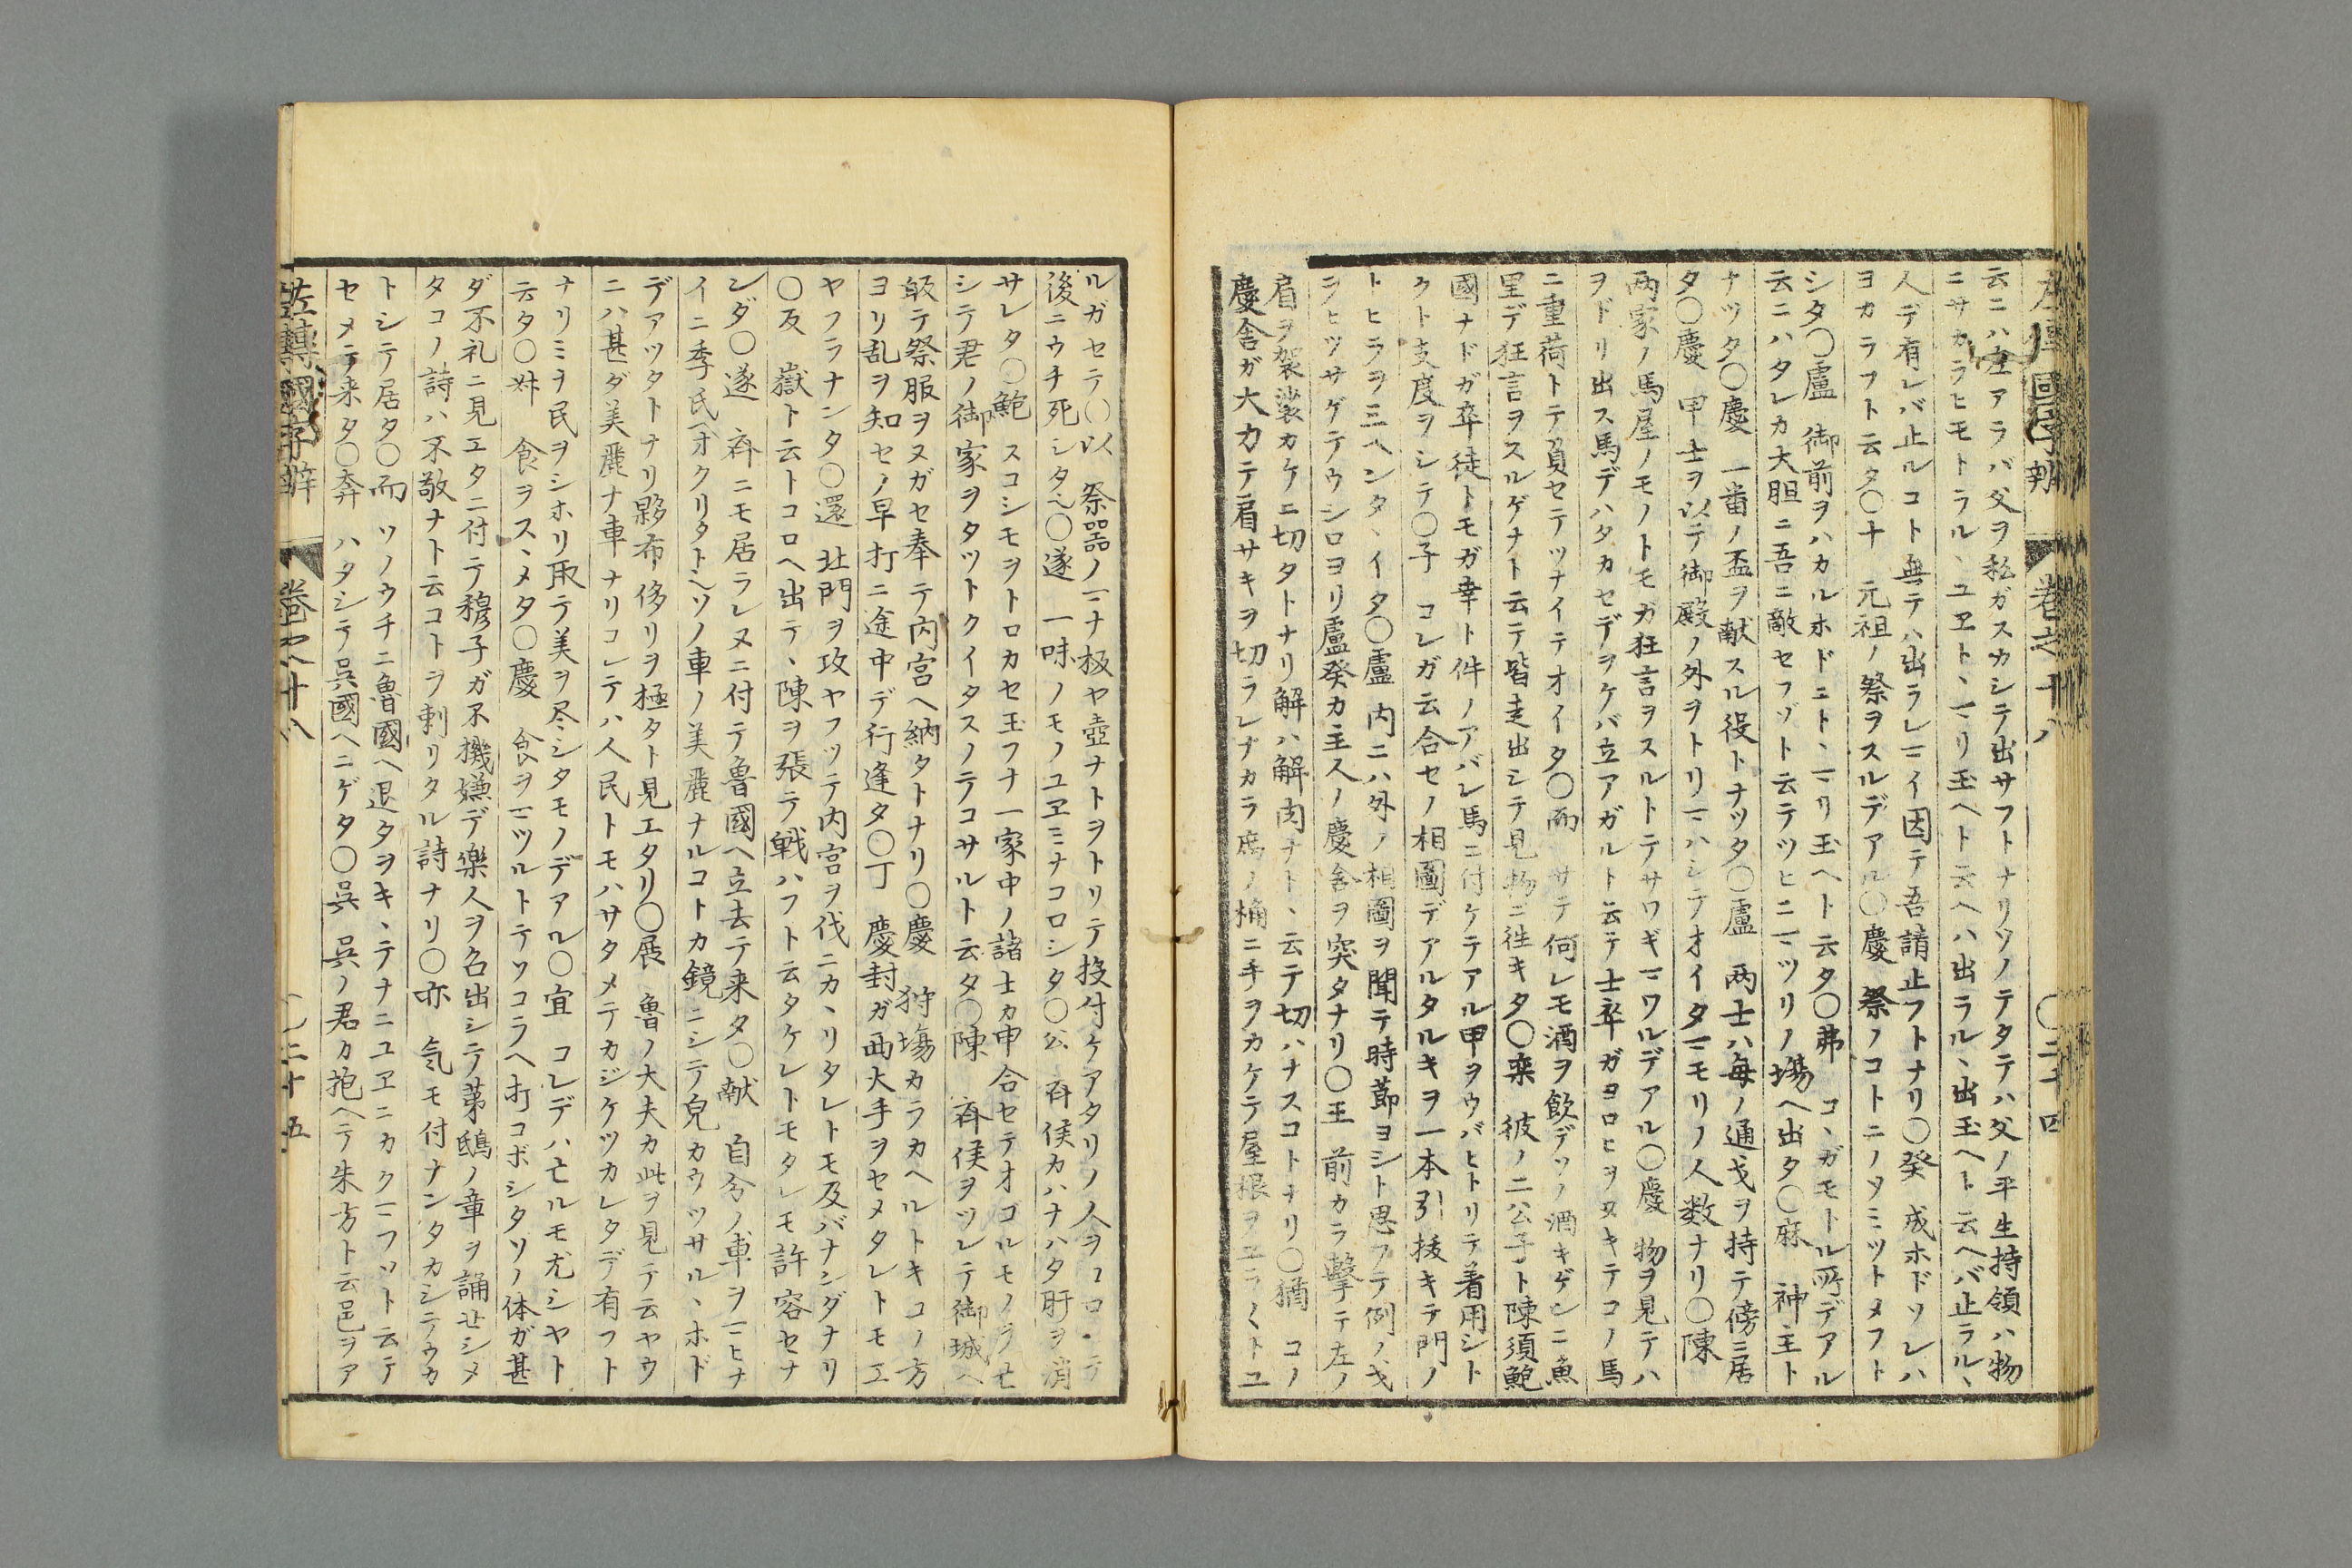 左傳國字辨 卷之十八 〇二十四
云ニハ左アラバ父ヲ私ガスカシテ出サフトナリソノテタテハ父ノ平生持領ハ物
ニサカラヒモトラル、ユヱト、マリ玉ヘト云ヘハ出ラル、出玉ヘト云ヘバ止ラル、
人デ有レバ止ルコト無テハ出ラレマイ因テ吾請止フトナリ〇癸 成ホドソレハ
ヨカラフト云タ〇十 元祖ノ祭ヲスルデアル〇慶 祭ノコトニノゾミツトメフト
シタ〇盧 御前ヲハカルホドニト、マリ玉ヘト云タ〇弗 コ、ガモトル所デアル
云ニハタレカ大胆ニ吾ニ敵セフゾト云テツヒニマツリノ場ヘ出タ〇麻 神主ト
ナツタ〇慶 一番ノ盃ヲ献スル役トナツタ〇盧 両士ハ毎ノ通戈ヲ持テ傍ニ居
タ〇慶 甲士ヲ以テ御殿ノ外ヲトリマハシテオイタマモリノ人数ナリ〇陳
両家ノ馬屋ノモノトモガ狂言ヲスルトテサワギマワルデアル〇慶 物ヲ見テハ
ヲドリ出ス馬デハタカセデヲケバ立アガルト云テ士卒ガヨロヒヲヌキテコノ馬
ニ重荷トテ負セテツナイテオイタ〇而 サテ何レモ酒ヲ飲デソノ酒キゲンニ魚
里デ狂言ヲスルゲナト云テ皆走出シテ見物ニ往キタ〇欒 彼ノ二公子ト陳須鮑
國ナドガ卒徒トモガ幸ト件ノアバレ馬ニ付ケテアル甲ヲウバヒトリテ着用シト
クト支度ヲシテ〇子 コレガ云合セノ相圖デアルタルキヲ一本引抜キテ門ノ
トヒラヲ三ヘンタ、イタ〇盧 内ニハ外ノ相圖ヲ聞テ時節ヨシト思フテ例ノ戈
ヲヒツサゲテウシロヨリ盧癸カ主人ノ慶舎ヲ突タナリ〇王 前カラ撃テ左ノ
肩ヲ袈裟カケニ切タトナリ解ハ解肉ナト、云テ切ハナスコトナリ〇猶 コノ
慶舎ガ大力テ肩サキヲ切ラレナカラ廟ノ桷ニ手ヲカケテ屋根ヲユラ〱トユ
ルガセテ〇以 祭器ノマナ板ヤ壺ナトヲトリテ投付ケアタリノ人ヲコロ、テ
後ニウチ死シタ〇遂 一味ノモノユヱミナコロシタ〇公 斉侯カハナハタ肝ヲ消
サレタ〇鮑 スコシモヲトロカセ玉フナ一家中ノ諸士カ申合セテオゴルモノラセ
シテ君ノ御家ヲタツトクイタスノテコサルト云タ〇陳 斉侯ヲツレテ御城ヘ
皈テ祭服ヲヌガセ奉テ内宮ヘ納タトナリ〇慶 狩場カラカヘルトキコノ方
ヨリ乱ヲ知セノ早打ニ途中デ行逢タ〇丁 慶封ガ西大手ヲセメタレトモエ
ヤフラナンタ〇還 北門ヲ攻ヤフツテ内宮ヲ伐ニカ、リタレトモ及バナンダナリ
〇反 嶽ト云トコロヘ出テ、陳ヲ張テ戦ハフト云タケレトモタレモ許容セナ
ンダ〇遂 斉ニモ居ラレヌニ付テ魯國ヘ立去テ来タ〇献 自分ノ車ヲマヒナ
イニ季氏ヘオクリタトソノ車ノ美麗ナルコトカ鏡ニシテ皃カウツサル、ホド
デアツタトナリ夥布侈リヲ極タト見エタリ〇展 魯ノ大夫カ此ヲ見テ云ヤウ
ニハ甚ダ美麗ナ車ナリコレテハ人民トモハサタメテカジケツカレタデ有フト
ナリミヲ民ヲシホリ取テ美ヲ尽シタモノデアル〇宜 コレデハ亡ルモ尤シヤト
云タ〇叔 食ヲス、メタ〇慶 食ヲマツルトテソコラヘ打コボシタソノ体ガ甚
ダ不礼ニ見エタニ付テ穆子ガ不機嫌デ楽人ヲ召出シテ茅鴟ノ章ヲ誦セシメ
タコノ詩ハ不敬ナト云コトヲ刺リタル詩ナリ〇亦 気モ付ナンタカシテウカ
トシテ居タ〇而 ソノウチニ魯國ヘ退タヲキ、テナニユヱニカクマフソト云テ
セメテ来タ〇奔 ハタシテ呉國ヘニゲタ〇呉 呉ノ君カ抱ヘテ朱方ト云邑ヲア
左傳國字辨 卷之十八 二十五